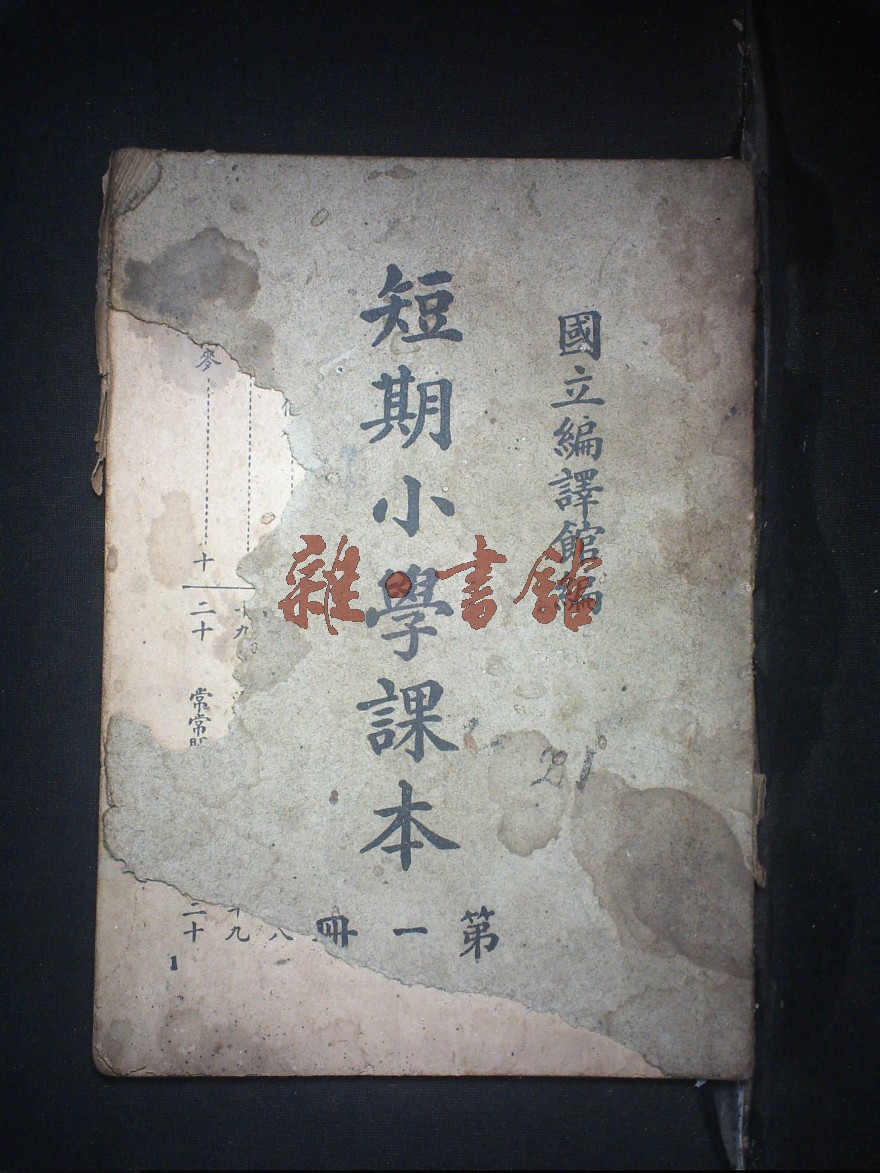 國立編譯館編
短期小學課本
第一冊
雜·書館
21
十九
八
十九
參
十
二十
常常
二十
1